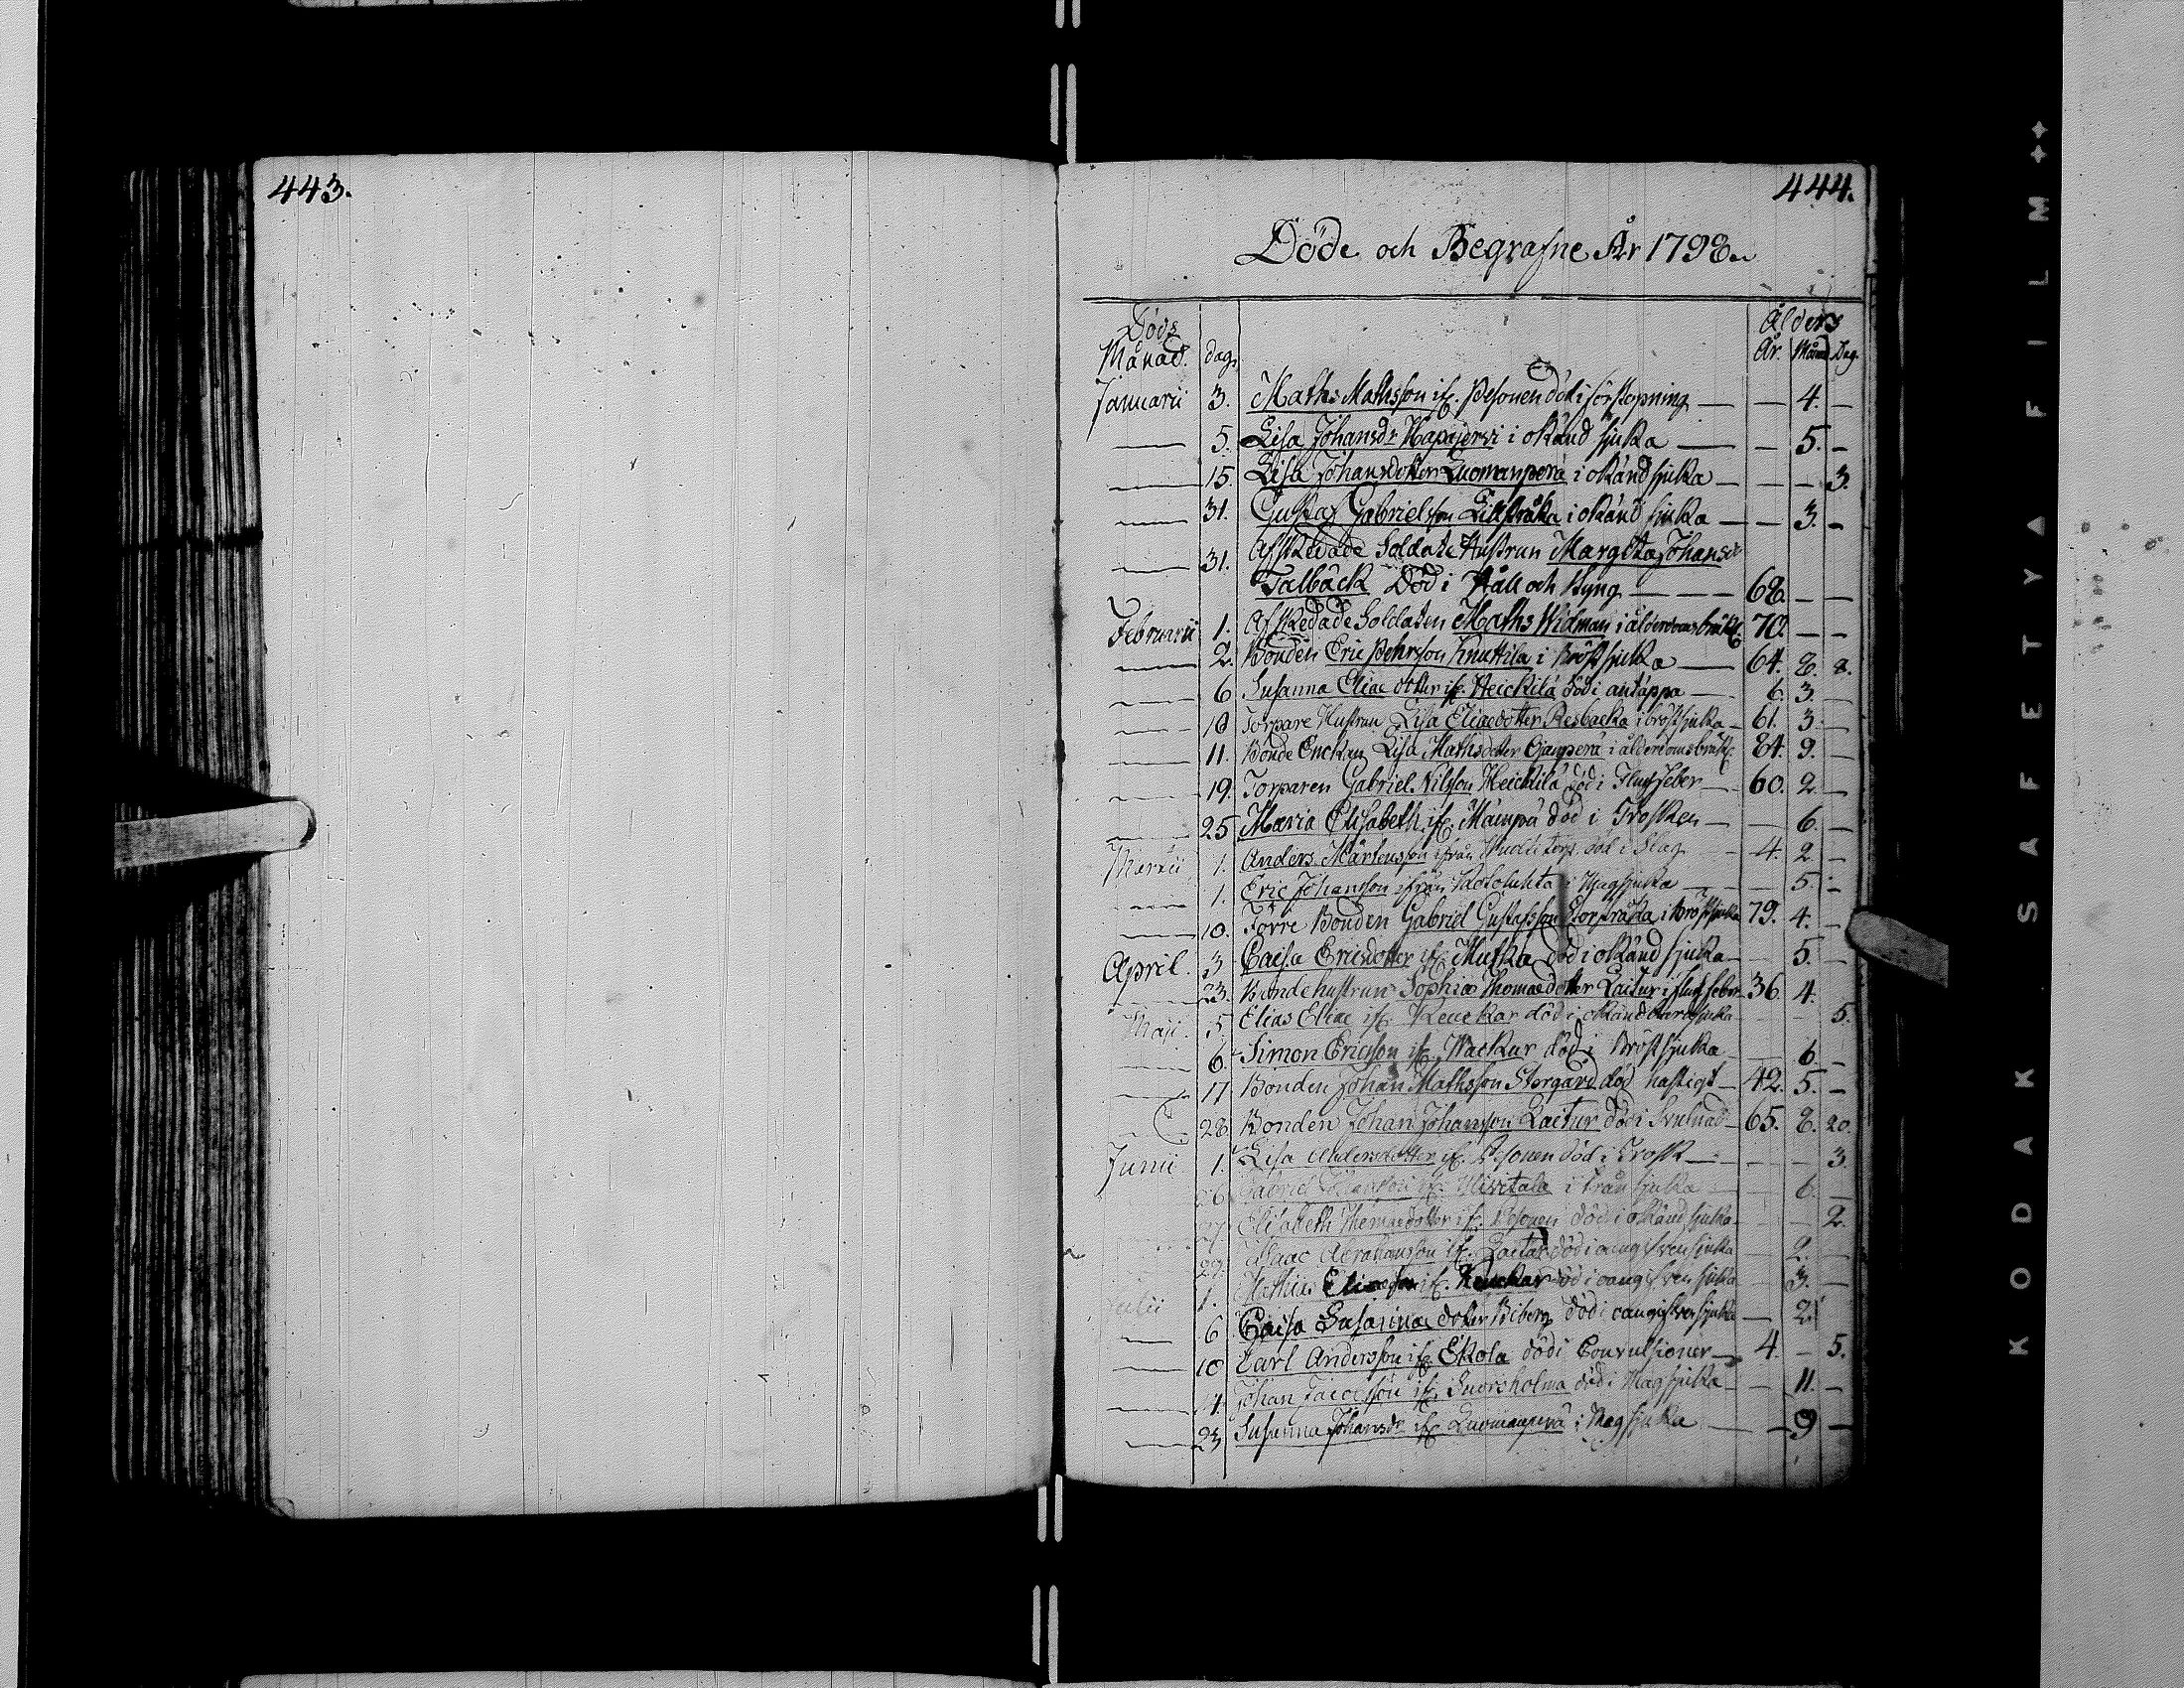 443.
444.
Döde och Begrafne År 1798.
Döds Ålders
Månad. dag. År. Månad. Dag.
Januarii 3. Maths Mathsson if. Pesonen död i förstopning — — 4. —
— 5. Lisa Johansdr Kapsjervi i okänd sjuka — — 5. —
— 15. Lisa Johansdotter Luomanperä i okänd sjuka — — — 3.
— 31. Gustaf Gabrielsson Lillstråka i okänd sjuka — — 3. —
— 31. Afskedade Soldats Hustrun Margeta Johansdr
Talbäck Död i Håll och Styng — 68. — —
Februarii 1. Afskedade Soldaten Maths Widman i ålderdoms bräckl. 70. — —
— 2. Bonden Eric Pehrsson Knuttila i Bröstsjuka — 64. 8. 8.
— 6 Susanna Eliae dotter if. Heickilä död i antäppa — 6. 3. —
— 10 Torpare Hustrun Lisa Eliaedotter Resbacka i bröstsjuka — 61. 3. —
— 11. Bonde Enckan Lisa Mathsdotter Ojanperä i ålderdomsbräckl. 84. 9. —
— 19. Torparen Gabriel Nilsson Heickilä död i Flussfeber — 60. 2. —
— 25 Maria Elisabeth if. Mämpä död i Trosken — — 6. —
Martii 1. Anders Mårtensson ifrån torp. död i Slag 4. 2. —
— 1. Eric Johansson ifrån Kotoluhta i — — 5. —
— 10. Förre Bonden Gabriel Gustafsson Storstråka i Bröstsjuka 79. 4. —
April. 3 Caisa Ericsdotter if. Mutka död i okänd sjuka — — 5. —
— 23. Bondehustrun Sophia Thomaedotter Laitur i fluss feber 36. 4.
Maji. 5 Elias Eliae if. Renckar död i okänd sjuka — — 5.
— 6. Simon Ericsson if. Wackur död i Bröstsjuka — — 6. —
— 17 Bonden Johan Mathsson Storgård död hastigt — 42. 5. —
— 28 Bonden Johan Johansson Laitur död i Svulnad — 65. 8. 20.
Junii 1. Lisa Andersdotter if. Pesonen död i Trosk — — — 3.
26 Gabriel Johansson if. Hirvitala i sjuka — — 6. —
27. Elisabeth Thomaedotter if. Pesonen död i okänd sjuka — — — 2.
29. Isaac Abrahamsson if. Laitur död i oangifven sjuka — 2. —
Julii 1. Mathias Eliaesson if. Renckar död i oangifven sjuka — 3. —
— 6 Caisa Susanna dotter Biberg död i oangifven sjuka — 2.
— 10 Carl Andersson if. Ekola död i Convulsioner — 4. — 5.
— Johan Jacobsson if. Snörsholma död i Magsjuka — — 11. —
— 23 Susanna Johansdr if. Luomanperä i Magsjuka — — 9 —
KODAK SAFETY FILM